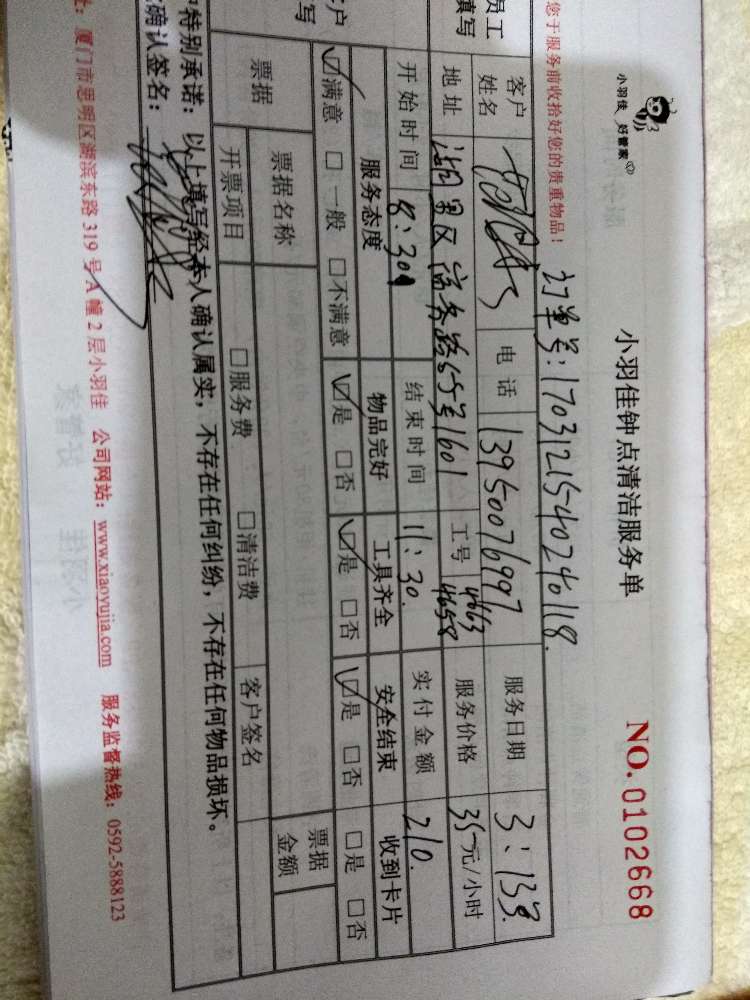 小羽佳 好管家
小羽佳钟点清洁服务单
NO. 0102668
您于服务前收拾好您的贵重物品！
订单号：1703121540240118.
员工
填写
客户
姓名
电话 13950076997
服务日期 3：13号
地址 湖里区 商务路55号1601
工号 4663
4658
服务价格 35元/小时
开始时间 8：30
结束时间 11：30.
实付金额 210.
客户
写
服务态度 物品完好 工具齐全 安全结束 收到卡片
☑满意 □一般 □不满意 ☑是 □否 ☑是 □否 ☑是 □否 □是 □否
票据
票据名称
票据
金额
开票项目 □服务费 □清洁费 客户签名
特别承诺：以上填写经本人确认属实，不存在任何纠纷，不存在任何物品损坏。
确认签名：
址：厦门市思明区湖滨东路 319 号 A 幢 2 层小羽佳 公司网站：www.xiaoyujia.com 服务监督热线：0592-5888123